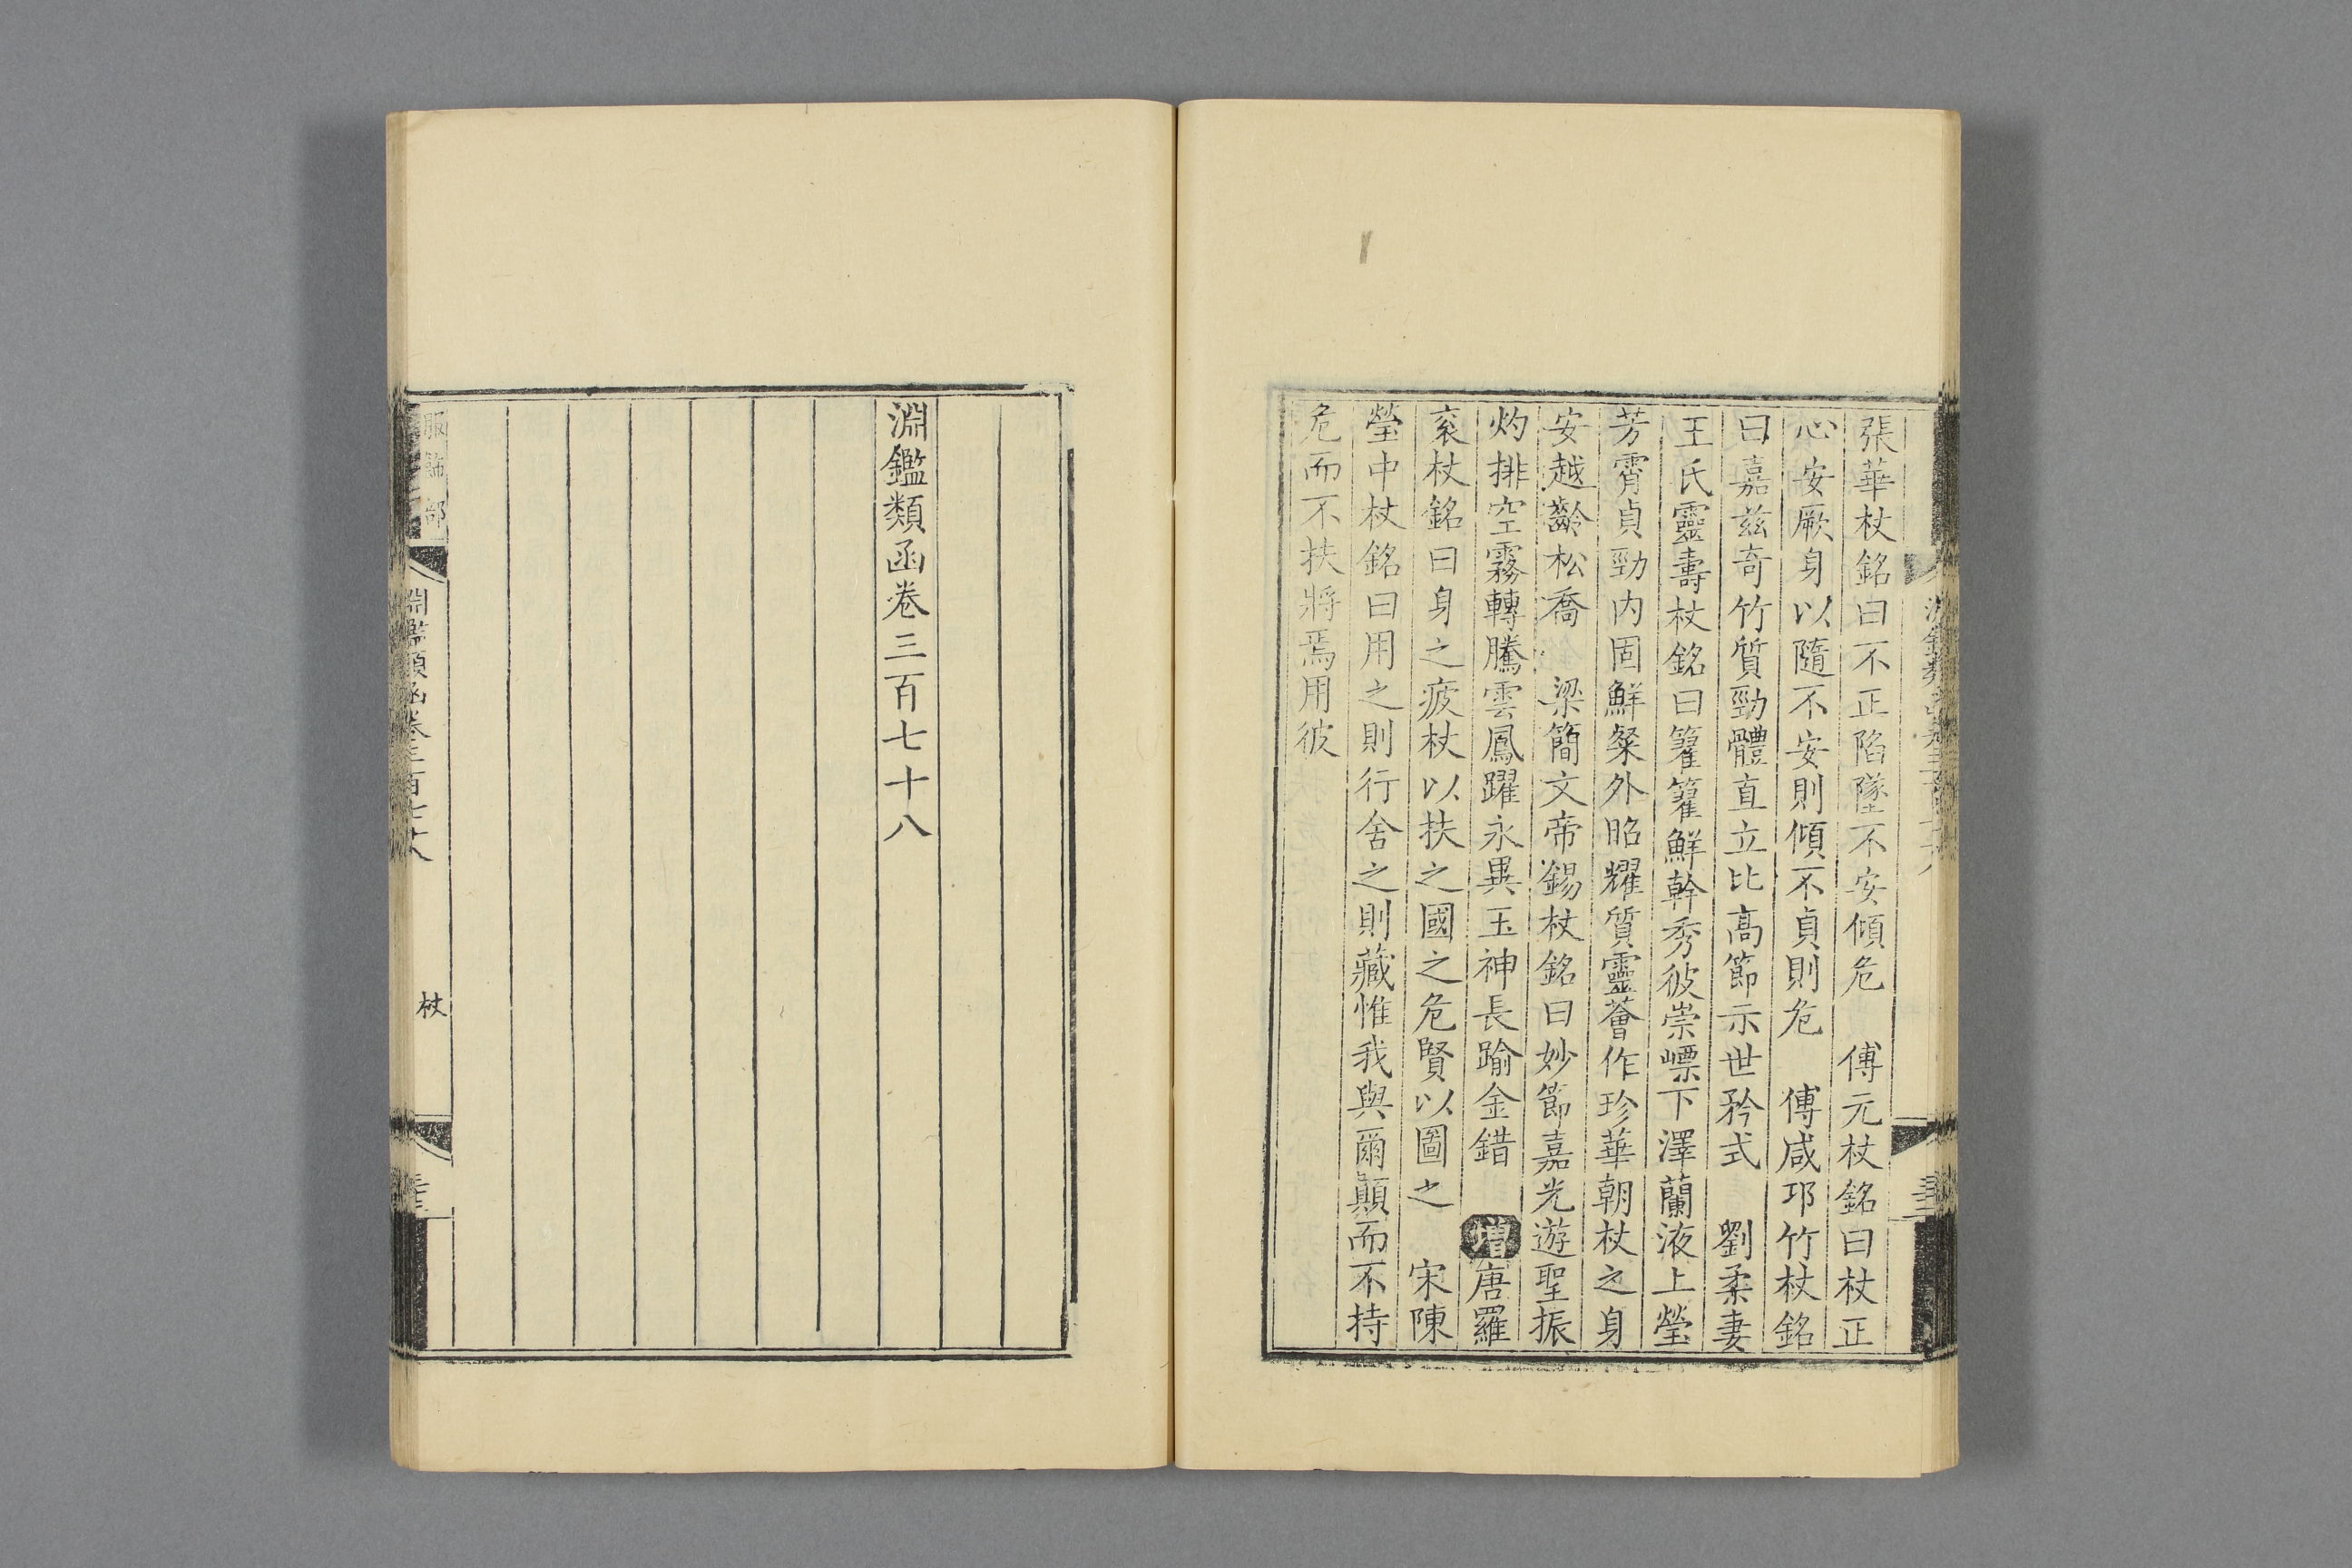 張華杖銘曰不正陷墜不安傾危　傅元杖銘曰杖正
心安厥身以隨不安則傾不貞則危　傅咸邛竹杖銘
曰嘉兹奇竹質勁體直立比高節示世矜式　劉柔妻
王氏靈壽杖銘曰籊籊鮮幹秀彼崇嶫下澤蘭液上瑩
芳霄貞勁内固鮮粲外昭耀質靈薈作珍華朝杖之身
安越齡松喬　梁簡文帝錫杖銘曰妙節嘉光遊聖振
灼排空霧轉騰雲鳳躍永異玉神長踰金錯　增唐羅
衮杖銘曰身之疲杖以扶之國之危賢以圖之　宋陳
瑩中杖銘曰用之則行舍之則藏惟我與爾顛而不持
危而不扶將焉用彼
淵鑑類函卷三百七十八
服飾部
淵鑑類函卷三百七十八
杖